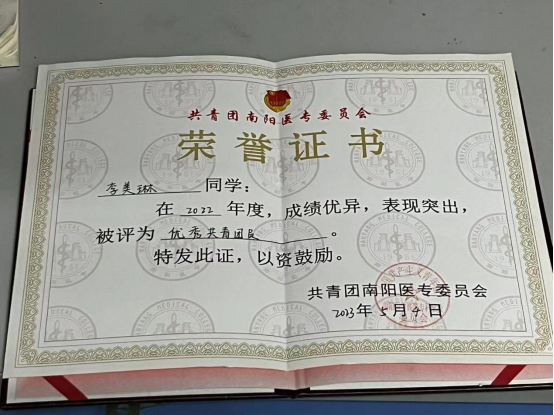 共青团南阳医专委员会
荣誉证书
李美琳 同学：
在 2022 年度，成绩优异，表现突出，
被评为 优秀共青团员 。
特发此证，以资鼓励。
共青团南阳医专委员会
2023年5月4日